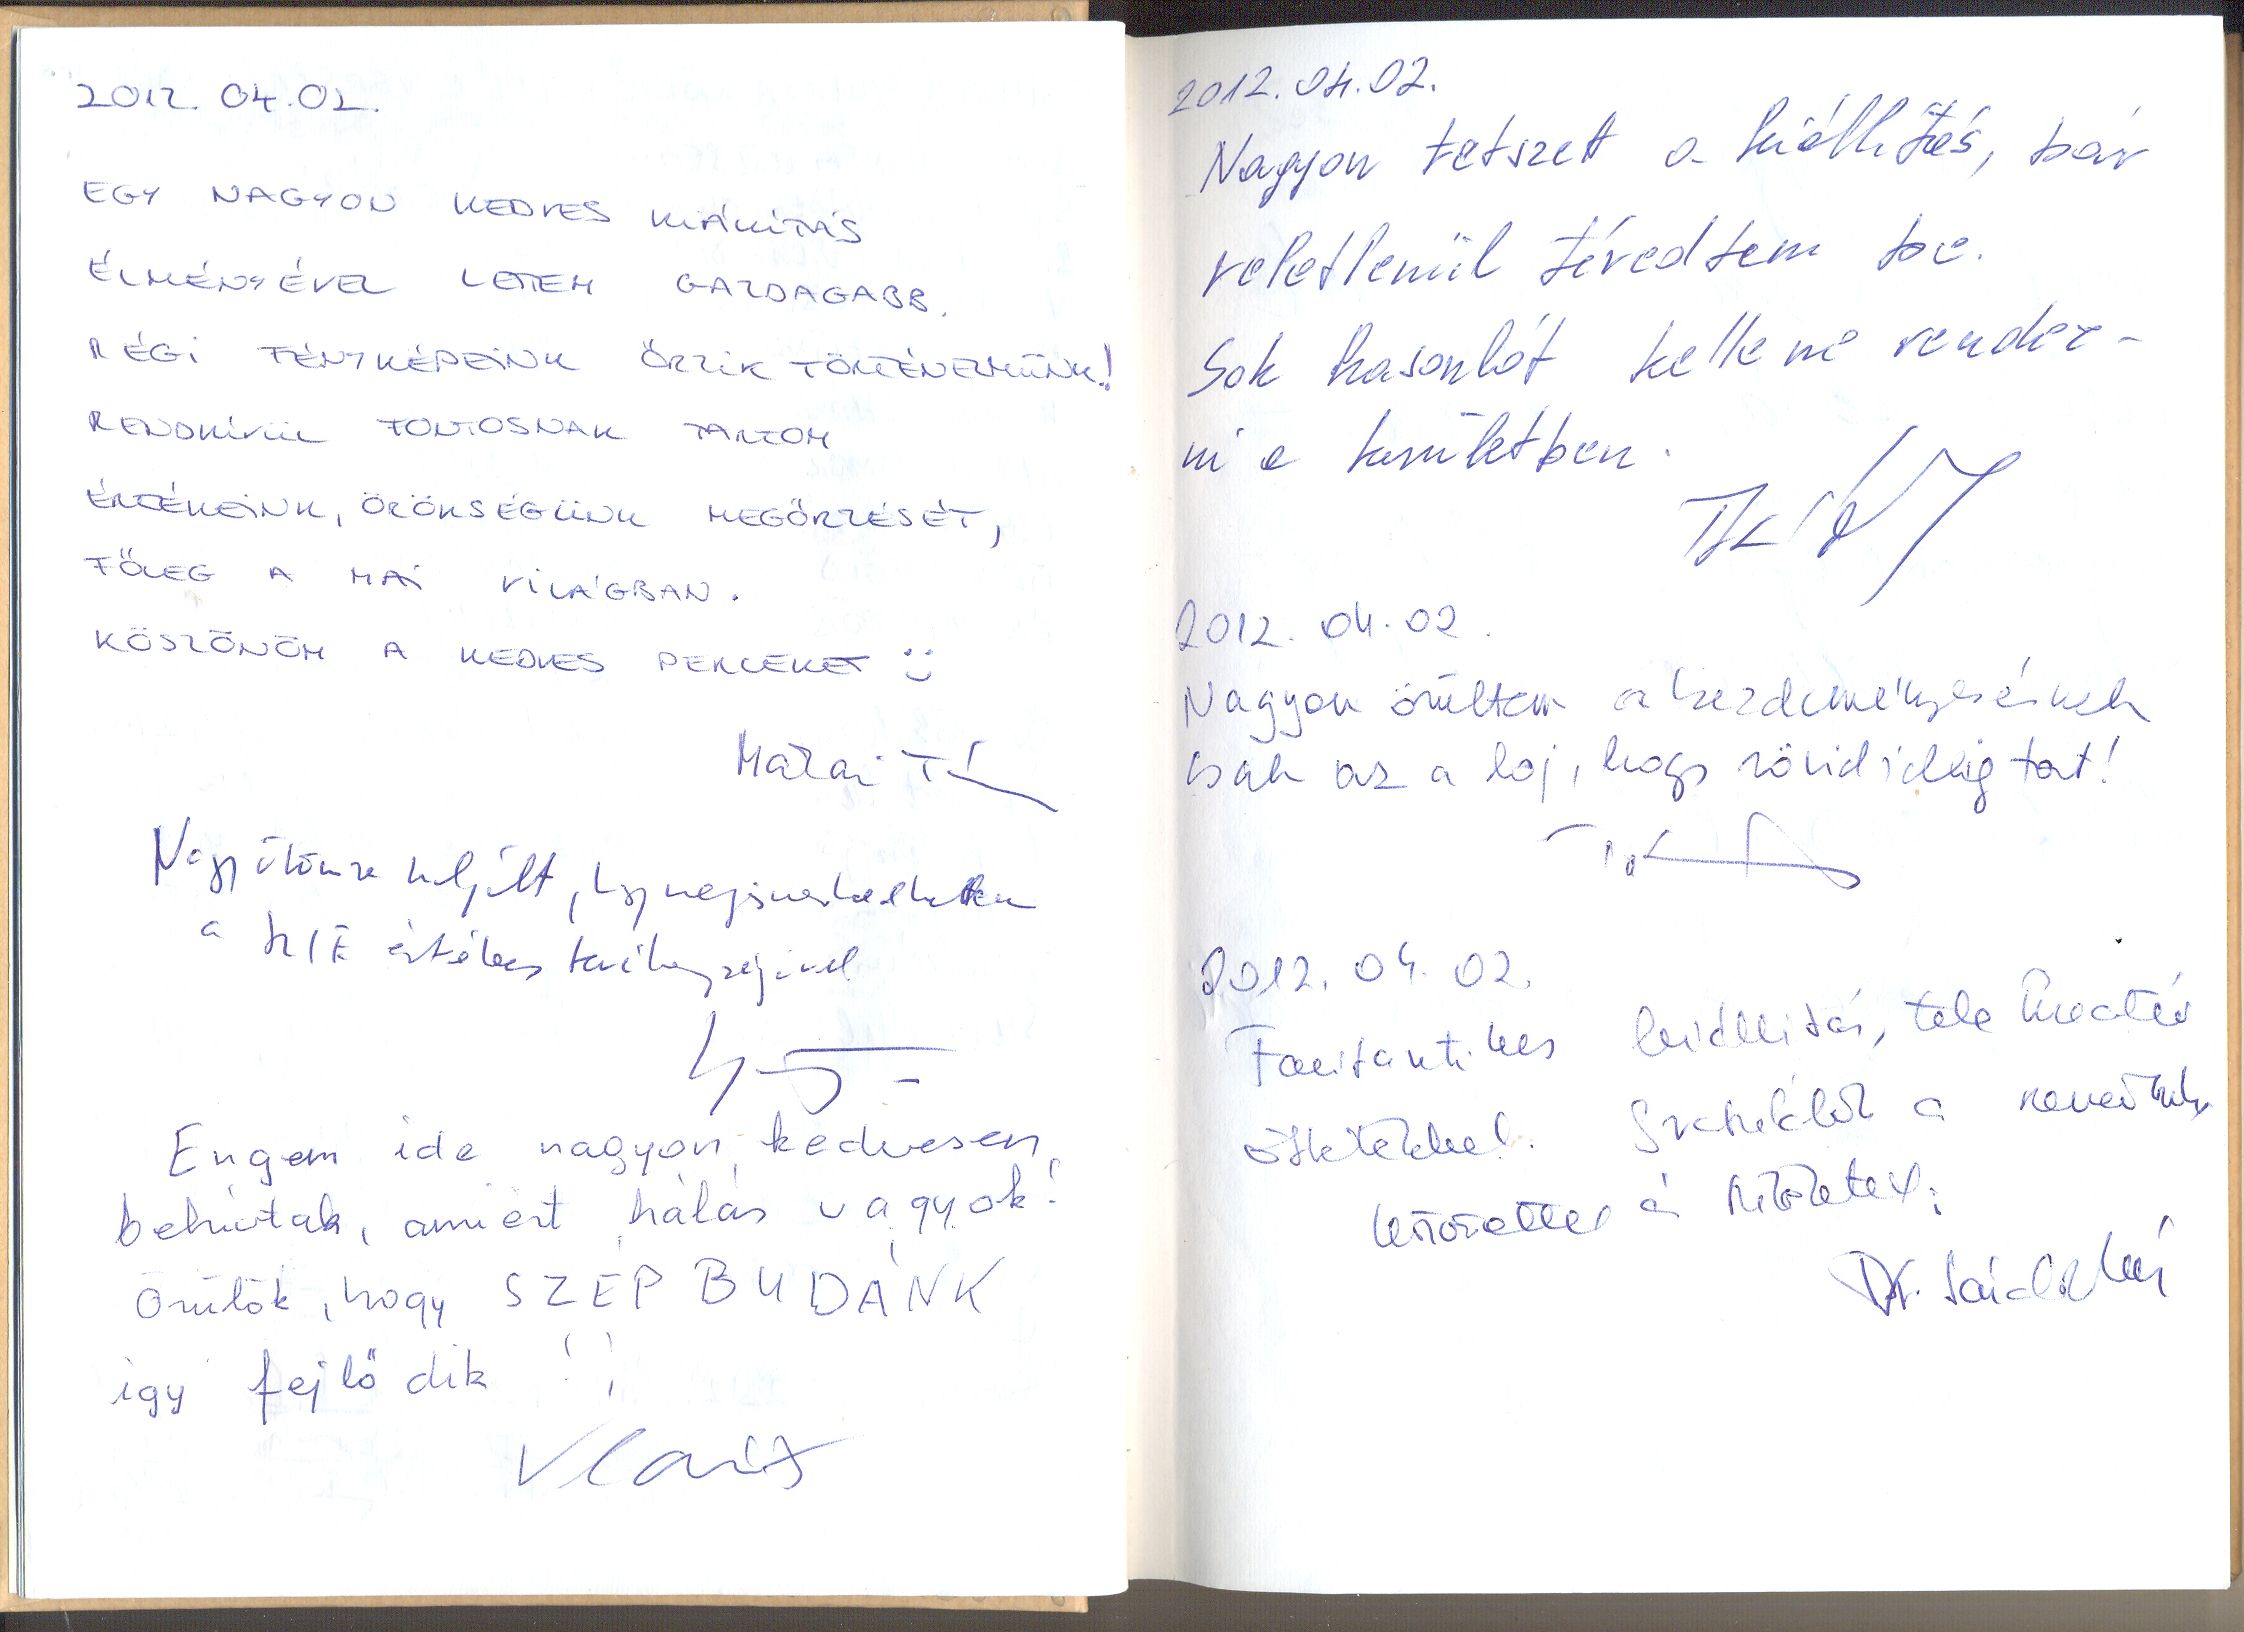 2012. 04. 02.
EGY NAGYON KEDVES KIÁLLÍTÁS
ÉLMÉNYÉVEL LETTEM GAZDAGABB.
RÉGI FÉNYKÉPEINK ŐRZIK TÖRTÉNELMÜNK!
RENDKÍVÜL FONTOSNAK TARTOM
ÉRTÉKEINK, ÖRÖKSÉGÜNK MEGŐRZÉSÉT,
FŐLEG A MAI VILÁGBAN.
KÖSZÖNÖM A KEDVES PERCEKET :)
Nagy örömre
a értékes
Engem ide nagyon kedvesen
behívtak, amiért hálás vagyok!
Örülök, hogy SZÉP BUDÁNK
így fejlődik !!
2012. 04. 02.
Nagyon tetszett a kiállítás, bár
véletlenül tévedtem be.
Sok hasonlót kellene rendez-
ni a kerületben.
2012. 04. 02.
Nagyon örültem a kezdeményezésnek
csak az a baj, hogy rövid ideig tart!
2012. 04. 02.
Fantasztikus kiállítás, tele kreatív
ötletekkel. a
és
Dr.